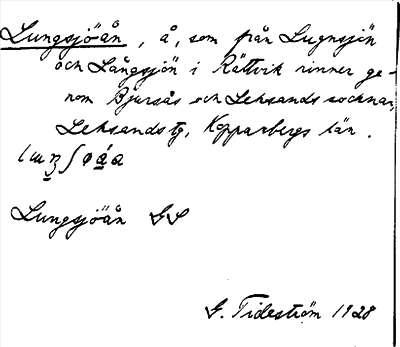 Lungsjöån, å, som från Lugnsjön
och Långsjön i Rättvik rinner ge-
nom Bjursås och Leksands socknar,
Leksands tg, Kopparbergs län.
Lungsjöån GS
G. Tideström 1928